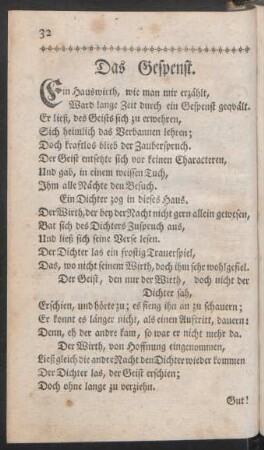 32
Das Gespenst.
Ein Hauswirth, wie man mir erzählt,
Ward lange Zeit durch ein Gespenst geqvält.
Er ließ, des Geists sich zu erwehren,
Sich heimlich das Verbannen lehren;
Doch kraftlos blieb der Zauberspruch.
Der Geist entsetzte sich vor keinen Characteren,
Und gab, in einem weissen Tuch,
Ihm alle Nächte den Besuch.
Ein Dichter zog in dieses Haus.
Der Wirth, der bey der Nacht nicht gern allein gewesen,
Bat sich des Dichters Zuspruch aus,
Und ließ sich seine Verse lesen.
Der Dichter las ein frostig Trauerspiel,
Das, wo nicht seinem Wirth, doch ihm sehr wohlgefiel.
Der Geist, den nur der Wirth, doch nicht der
Dichter sah,
Erschien, und hörte zu; es fieng ihn an zu schauern;
Er konnt es länger nicht, als einen Auftritt, dauern:
Denn, eh der andre kam, so war er nicht mehr da.
Der Wirth, von Hoffnung eingenommen,
Ließ gleich die andre Nacht den Dichter wieder kommen
Der Dichter las, der Geist erschien;
Doch ohne lange zu verziehn.
Gut!